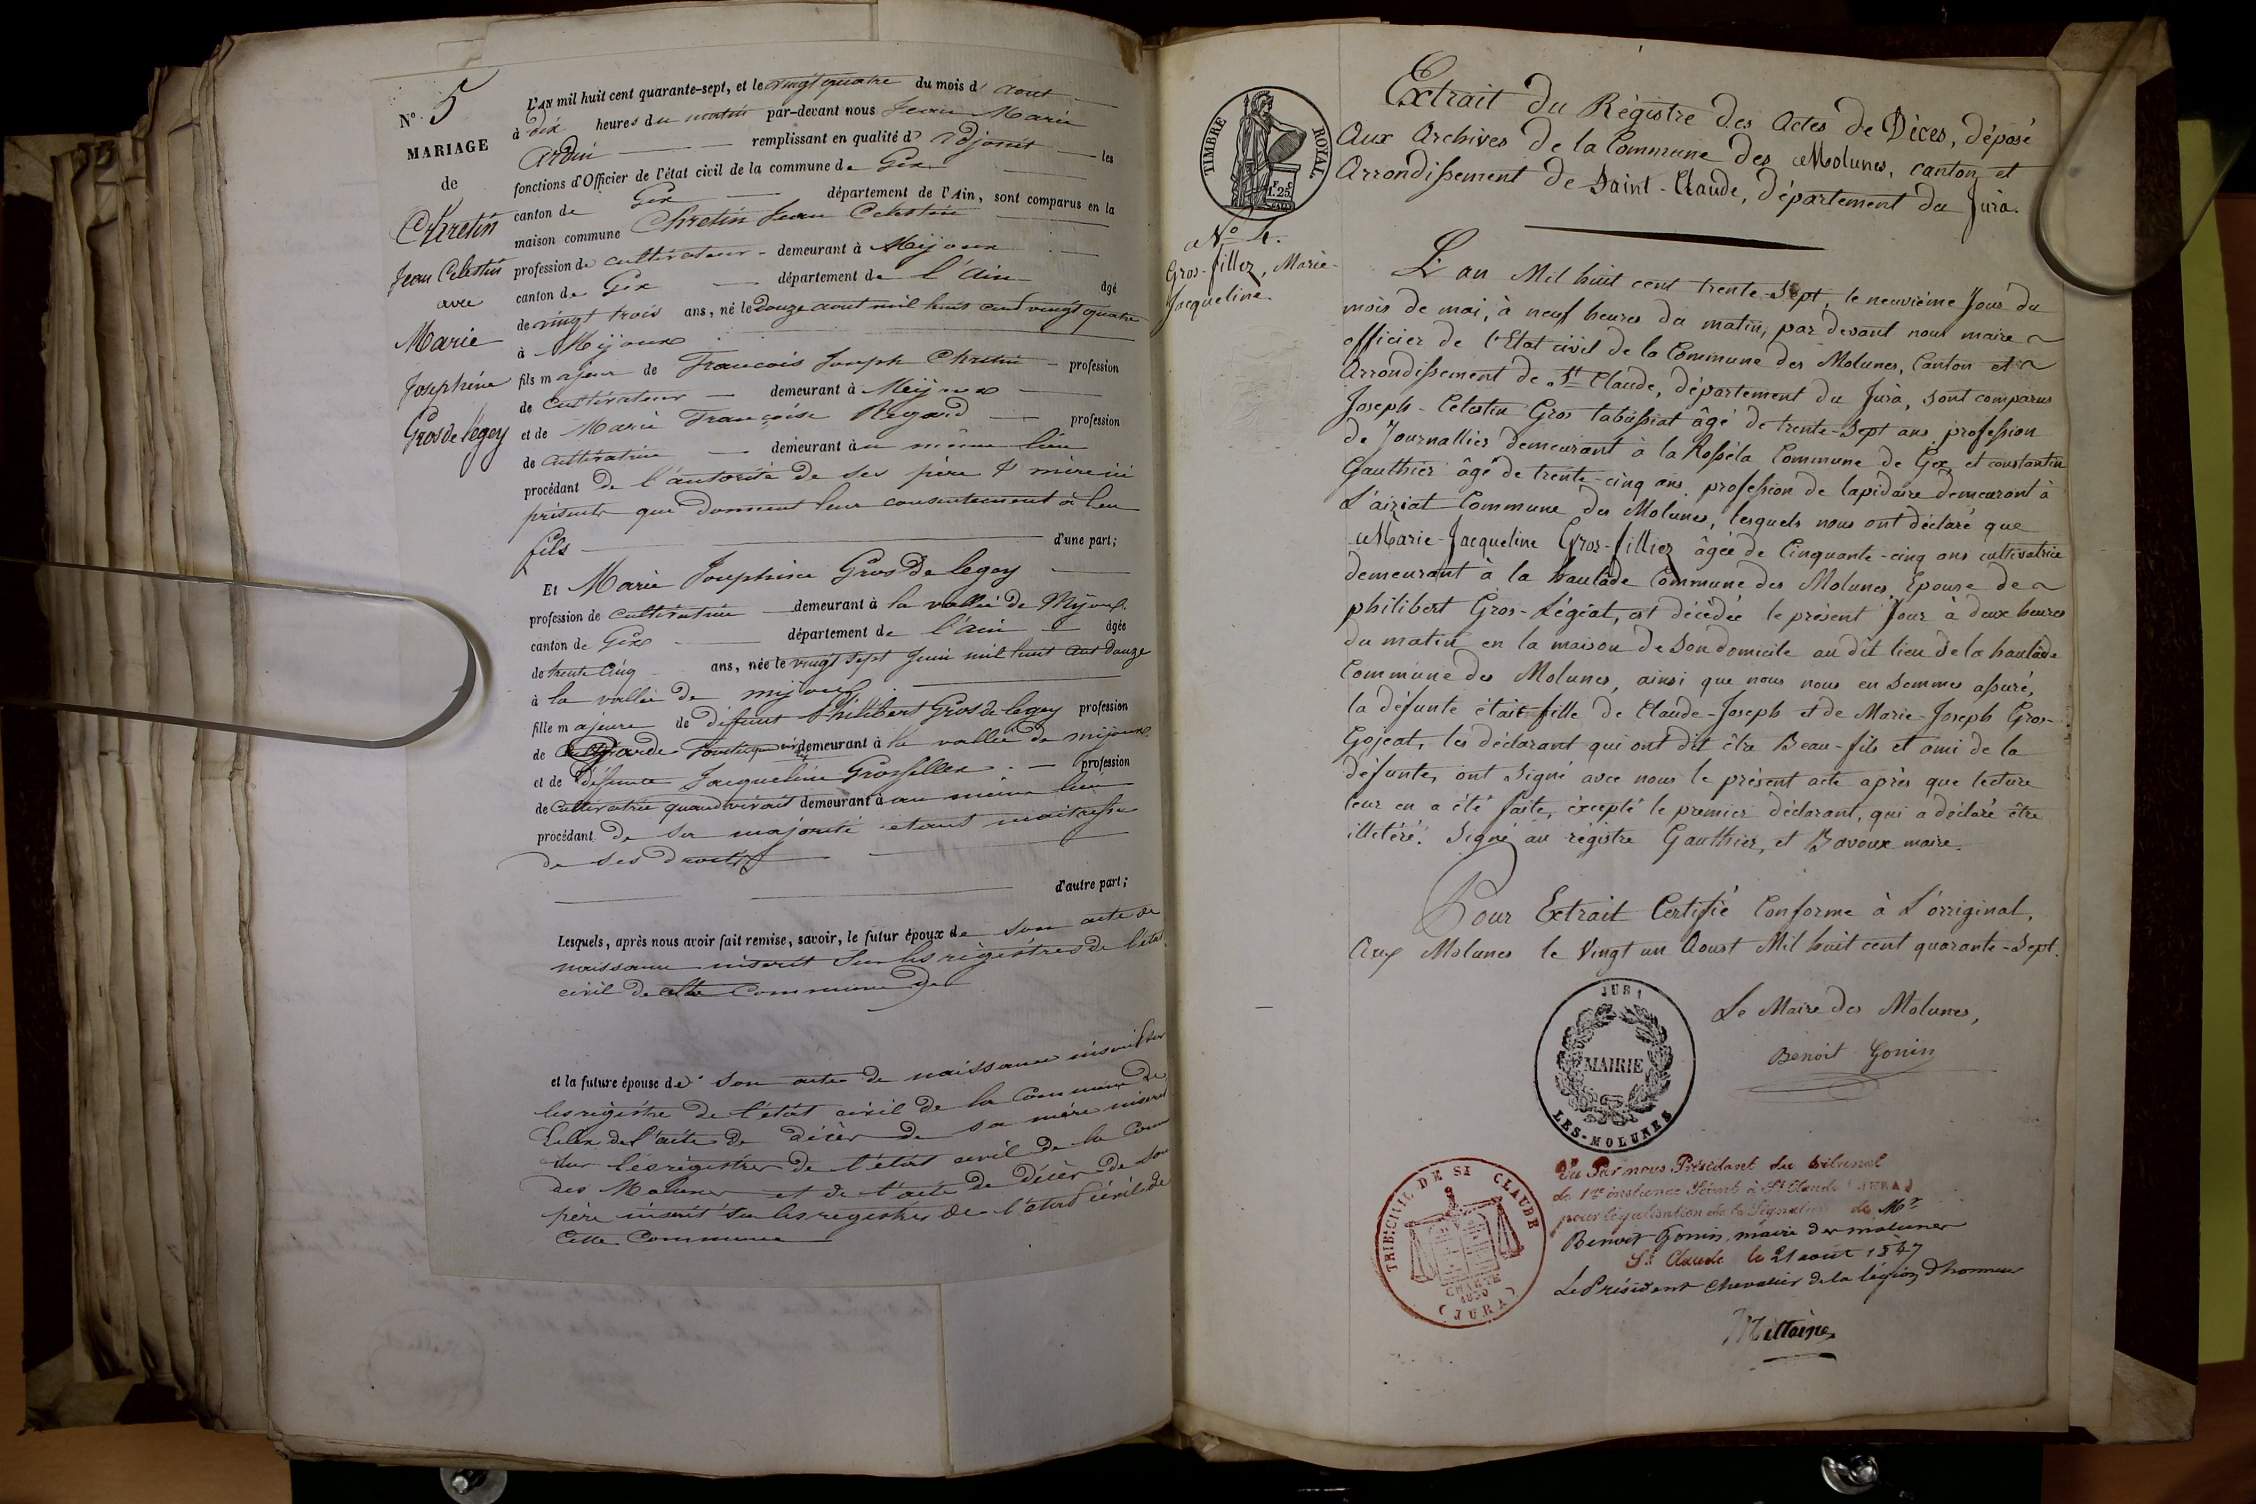 N.° 5
MARIAGE
de
Chretin
Jean Celestin
avec
Marie
Josephine
Gros de legey
L'AN mil huit cent quarante-sept, et le vingt quatre du mois d' aout
à dix heures du matin par-devant nous Jean Marie
remplissant en qualité d' adjoint les
fonctions d'Officier de l'état civil de la commune de Gex
canton de Gex département de l'Ain, sont comparus en la
maison commune Chretin Jean Celestin
profession de cultivateur demeurant à Mijoux
canton de Gex département de l'ain âgé
de vingt trois ans, né le douze aout mil huit cent vingt quatre
à Mijoux
fils majeur de Francois Joseph Chretin profession
de cultivateur demeurant à Mijoux
et de Marie Françoise Regard profession
de cultivatrice demeurant à au même lieu
procédant de l'autorité de ses père & mère ici
présents qui donnent leur consentement à leur
fils d'une part;
Et Marie Josephine Gros De legey
profession de cultivatrice demeurant à la vallée de Mijoux
canton de Gex département de l'ain âgée
de trente cinq ans, née le vingt sept Juin mil huit cent douze
à la vallée de mijoux
fille majeure de défunt Philibert Gros de legey profession
de Garde demeurant à la vallée de mijoux
et de défunte Jacqueline Grosfillex profession
de cultivatrice quand vivait demeurant à au même lieu
procédant de sa majorité étant maitresse
de ses droits
d'autre part;
Lesquels, après nous avoir fait remise, savoir, le futur époux de son acte de
naissance inscrit sur les régistres de l'état
civil de cette commune
et la future épouse de son acte de naissance inscrit sur
les régistre de l'état civil de la commune de
de l'acte de décès de sa mère inscrit
sur les régistres de l'état civil de la Com
des Molunes et de l'acte de décès de son
père inscrit sur les registres de l'état civil de
cette commune
TIMBRE ROYAL
1f. 25c
Extrait du Régistre des Actes de Dèces, déposé
Aux Archives de la Commune des Molunes, canton et
Arrondissement de Saint-Claude, département du Jura.
N.° 4.
Gros-fillez, Marie-
Jacqueline.
L'an Mil huit cent trente-Sept, le neuvième Jour du
mois de mai, à neuf heures du matin, par devant nous maire
officier de l'Etat civil de la Commune des Molunes, Canton et
Arrondissement de St. Claude, département du Jura, sont comparus
Joseph-Celestin Gros tabussiat âgé de trente-sept ans profession
de Journallier demeurant à la Commune de Gex, et constantin
Gauthier âgé de trente-cinq ans, profession de lapidaire demeurant à
L'aiziat Commune des Molunes, lesquels nous ont déclaré que
Marie-Jacqueline Gros-filliez âgée de Cinquante-cinq ans cultivatrice
demeurant à la haulade Commune des Molunes, Epouse de
philibert Gros-Légéat, est décédée le présent Jour à deux heures
du matin en la maison de Son domicile au dit lieu de la haulade
Commune des Molunes, ainsi que nous nous en sommes assuré,
la défunte était fille de Claude-Joseph et de Marie-Joseph Gros-
Gojeat, les déclarant qui ont dit être Beau-fils et ami de la
défunte, ont signé avec nous le présent acte après que lecture
leur en a été faite, éxcepté le premier déclarant, qui a déclaré être
illetéré. Signé au régistre Gauthier, et Bavoux maire.
Pour Extrait Certifié Conforme à L'orriginal,
Aux Molunes le Vingt un Aoust Mil huit cent quarante-Sept.
Le Maire des Molunes,
Benoit Gonin
JURA
MAIRIE
LES-MOLUNES
TRIB: CIVIL DE ST CLAUDE
CHARTE
1830
(JURA)
Vu Par nous Président du tribunal
de 1re instance Séant à St Claude (JURA)
pour légalisation de la Signature de Mr
Benoit Gonin, maire des molunes
St. Claude le 21 aout 1847
Le Président chevalier de la légion d'honneur